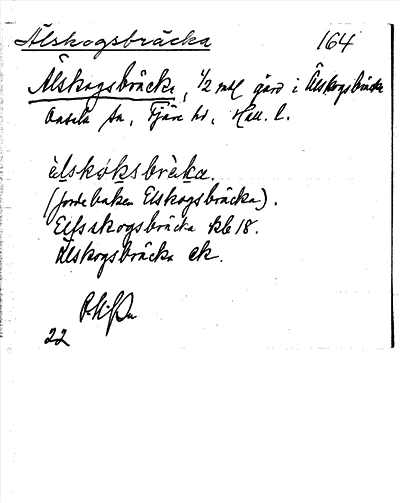 Älskogsbräcka 164
Älskogsbräcka, 1/2 mtl gård i Älskogsbräcka
Onsala sn, Fjäre hd, Hall. l.
èlskøksbrèka.
(jordeboken Elskogsbräcka).
Elfsakogsbräcka klb 18.
Älskogsbräcka ek.
22